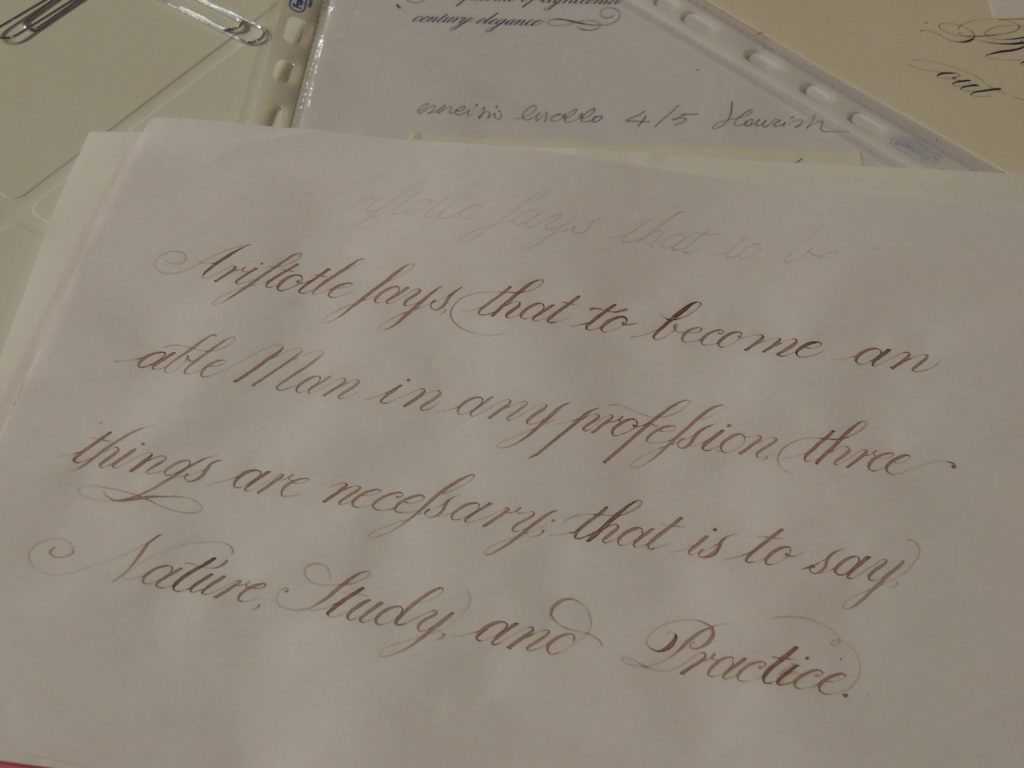 century elegance
4/5 flourish
Ariſtotle ſays that to be
Ariſtotle ſays, that to become an
able Man in any profeſsion, three
things are neceſsary; that is to say,
Nature, Study, and Practice.